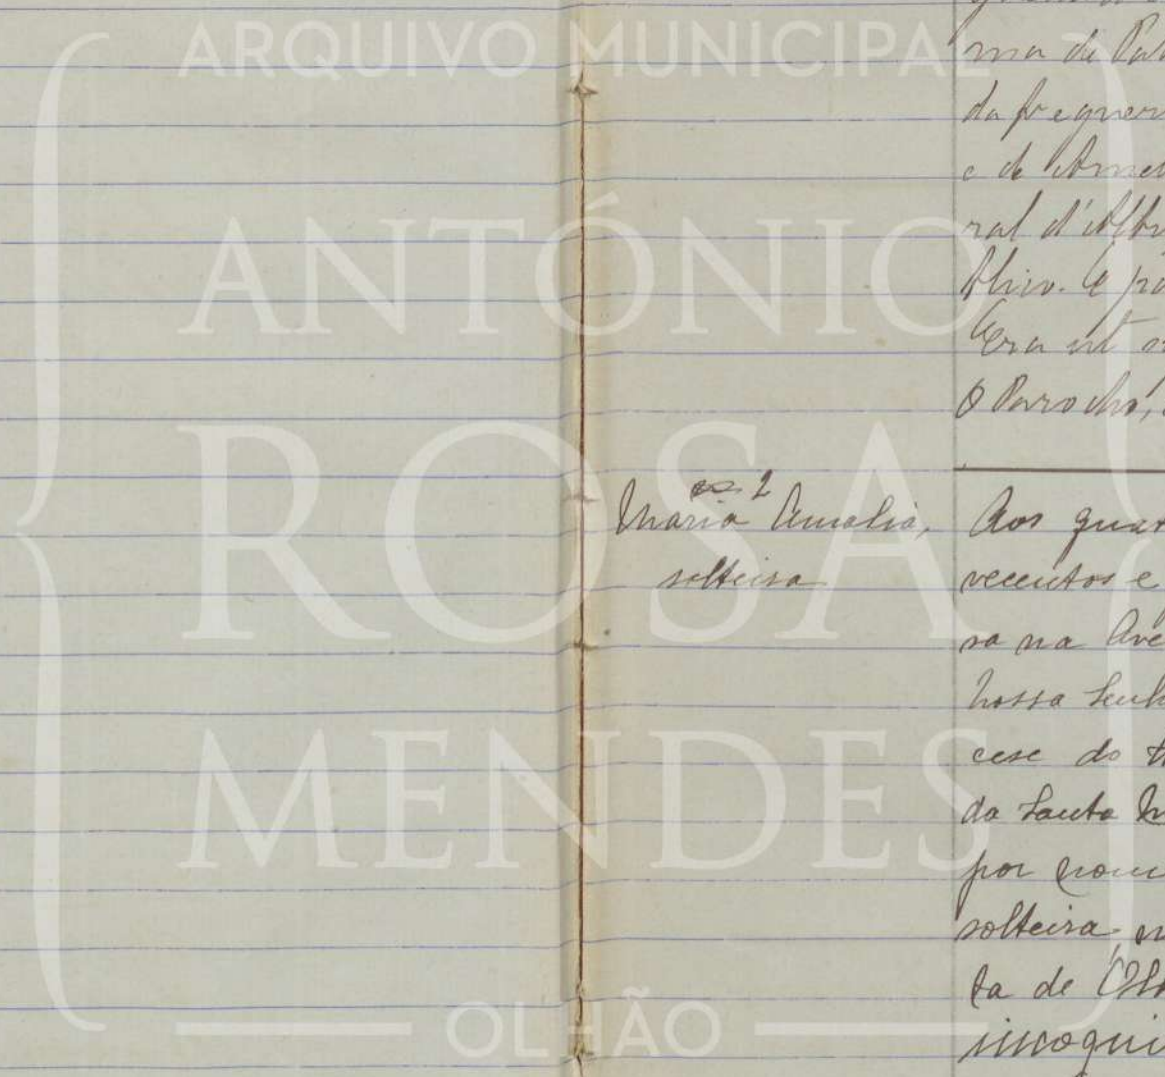 ARQUIVO MUNICIPAL
ANTÓNIO
ROSA
MENDES
OLHÃO
nº 2
Maria Amalia,
solteira
ma de
da fregues
e de
ral d'
E pa
Era ut
O Parocho,
Aos quat
vecentos e
ra na Ave
Nossa Senh
cese do
da Santa M
por nom
solteira, n
ta de Olh
incogni